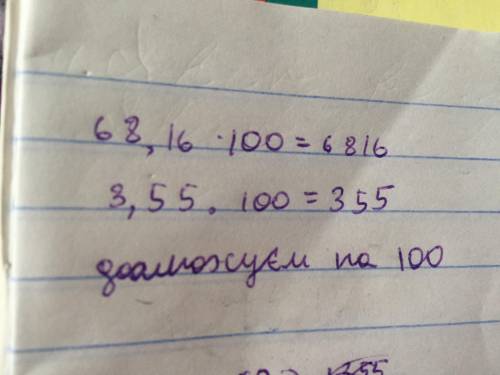 68,16 · 100 = 6816
3,55 . 100 = 355
домножуєм на 100